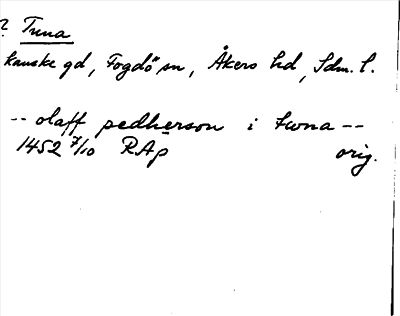 ? Tuna
kanske gd, Fogdö sn, Åkers hd, Sdm. l.
-- olaff pedherson i twna --
1452 7/10 RAp orig.